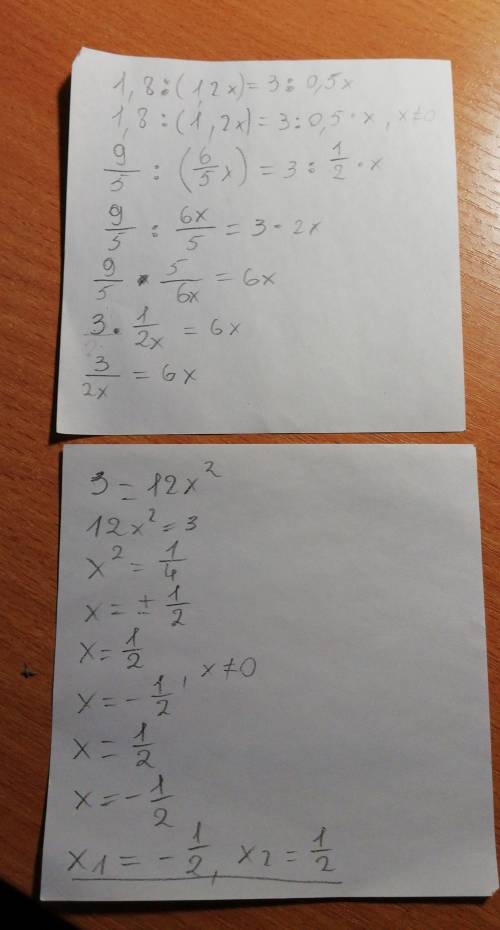 1,8:(1,2x)=3:0,5x
1,8:(1,2x)=3:0,5·x, x≠0
9/5 : (6/5 x) = 3 : 1/2 · x
9/5 : 6x/5 = 3·2x
9/5 · 5/6x = 6x
3 · 1/2x = 6x
3/2x = 6x
3=12x²
12x²=3
x²=1/4
x=±1/2
x=1/2
x=-1/2, x≠0
x=1/2
x=-1/2
x1=-1/2, x2=1/2